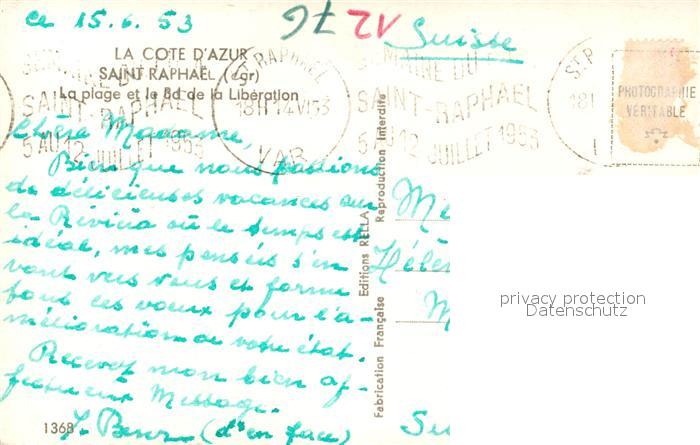 ce 15.6.53
76
12
Suisse
LA COTE D'AZUR
SAINT RAPHAËL (Var)
La plage et le Bd de la Libération
ST RAPHAEL
18H 14 VI 53
VAR
SEMAINE DU
SAINT-RAPHAEL
5 AU 12 JUILLET 1953
SEMAINE DU
SAINT-RAPHAEL
5 AU 12 JUILLET 1953
PHOTOGRAPHIE
VÉRITABLE
Chère Madame,
Bien que nous passions
de délicieuses vacances sur
la Riviéra où le temps est
idéal, mes pensées s'en
vont vers vous et forme
tout ces voeux pour l'a-
mélioration de votre état.
Recevez mon bien af-
fectueux Message.
(d'en face)
1368
Fabrication Française Editions RELLA Reproduction Interdite
Hélèn
privacy protection
Datenschutz